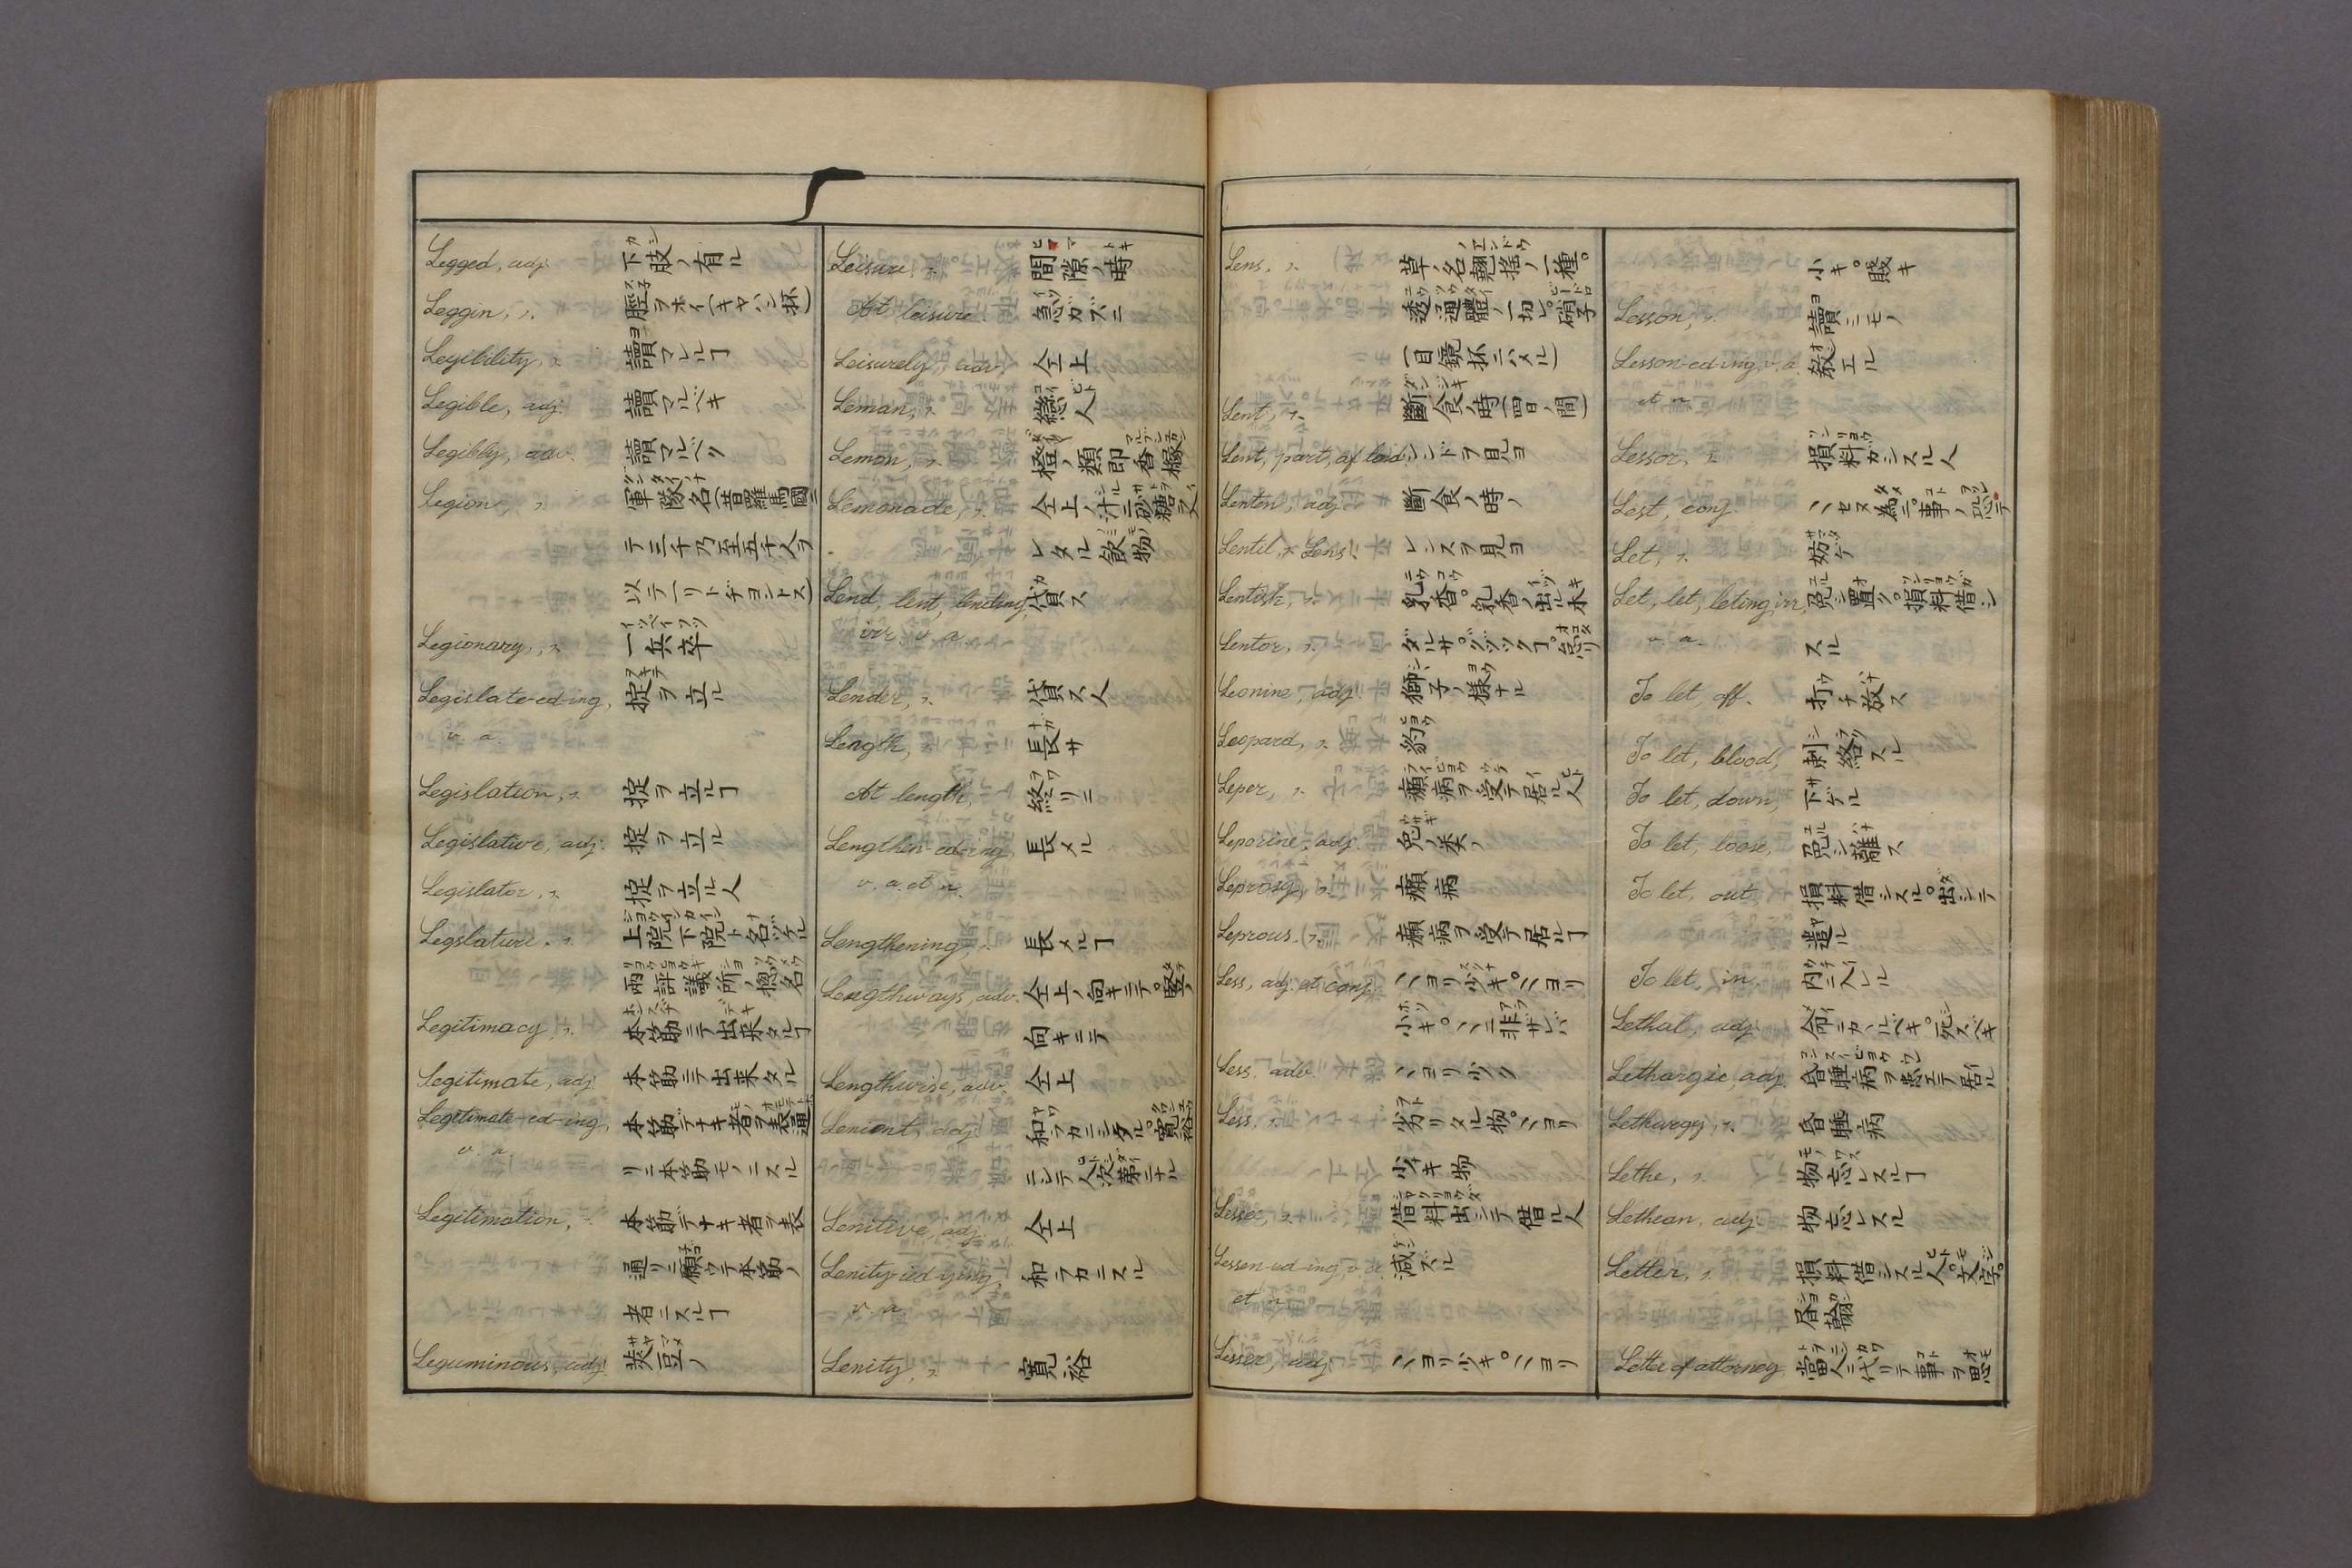 Legged, adj. 下肢ノ有ル
Leggin, n. 脛ヲホイ(キャハン抔)
Legibility, n. 讀マレルヿ
Legible, adj. 讀マルベキ
Legibly, adv. 讀マルベク
Legion, n. 軍隊ノ名(昔羅馬國ニ
テ三千乃至五千人ヲ
以テ一リトヂョントス)
Legionary, n. 一兵卒
Legislate-ed-ing, 掟ヲ立ル
v. a.
Legislation, n. 掟ヲ立ルヿ
Legislative, adj. 掟ヲ立ル
Legislator, n. 掟ヲ立ル人
Legslature, n. 上院下院ト名ヅケル
兩評議所ノ摠名
Legitimacy, n. 本筋ニテ出来タルヿ
Legitimate, adj. 本筋ニテ出来タル
Legitimate-ed-ing, 本筋デナキ者ヲ表通
v. a. リニ本筋モノニスル
Legitimation, 本筋デナキ者ヲ表
通リニ願ウテ本筋ノ
者ニスルヿ
Leguminous, adj. 莢豆ノ
Leisure, n. 間隙ノ時
At leisure. 急ガズニ
Leisurely, adv. 仝上
Leman, n. 戀人
Lemon, n. 橙ノ類即香橼
Lemonade, n. 仝上ノ汁ニ砂糖ヲ入
レタル飲物
Lend, lent, lending, 貸ス
irr. v. a.
Lender, n. 貸ス人
Length, 長サ
At length, 終リニ
Lengthen-ed-ing, 長メル
v. a. et n.
Lengthening, n. 長メルヿ
Lengthways, adv. 仝上ノ向キニテ。竪ノ
向キニテ
Lengthwise, adv. 仝上
Lenient, adj. 和ラカニシタル。寛裕
ニシテ人次第ニナル
Lenitive, adj. 仝上
Lenity-ied-ying, 和ラカニスル
v. a.
Lenity, n. 寛裕
Lens, n. 草ノ名翹搖ノ一種。
透通體ノ一切ビ。硝子
(目鏡抔ニハメル)
Lent, n. 斷食ノ時(四日ノ間)
Lent, part, of lend. ンドヲ見ヨ
Lenten, adj. 斷食ノ時ノ
Lentil, n. Lens. レンスヲ見ヨ
Lentisk, n. 乳香。乳香ノ出ル木
Lentor, n. 怠リ
Leonine, adj. 獅子ノ樣ナル
Leopard, n. 豹
Leper, n. 癩病ヲ受テ居ル人
Leporine, adj. 兔ノ类ノ
Leprosy, n. 癩病
Leprous, n. 癩病ヲ受テ居ルヿ
Less, adj. et conj. ヽヨリ少キ。ヽヨリ
小キ。ヽニ非ザレバ
Less. adv. ヽヨリ少ク
Less. n. 劣リタル物。ヽヨリ
少ナキ物
Lessee, n. 借料出シテ借ル人
Lessen-ed-ing, v. a. 減ズル
et n.
Lesser, adj. ヽヨリ少キ。ヽヨリ
小キ。賤キ
Lesson, n. 讀ミモノ
Lesson-ed-ing, v. a. 教エル
et n.
Lessor, n. 損料ガシスル人
Lest, conj. ヽセヌ為ニ。事ノ恐テ
Let, n. 妨ケ
Let, let, leting, irr. 免シ置ク。損料借シ
v. a. スル
To let, off. 打チ放ス
To let, blood, 刺絡スル
To let, down, 下ゲル
To let, loose, 免シ離ス
To let, out 損料借シスル。出シテ
遣ル
To let, in, 内ニ入レル
Lethal, adj. 命ニカヽルベキ。死スベキ
Lethargic, adj. 昏睡病ヲ患エテ居ル
Lethargy, n. 昏睡病
Lethe, n. 物忘レスルヿ
Lethean, adj. 物忘レスル
Letter, n. 損料借シスル人。文字。
書翰
Letter of attorney 當人ニ代リテ事ヲ思